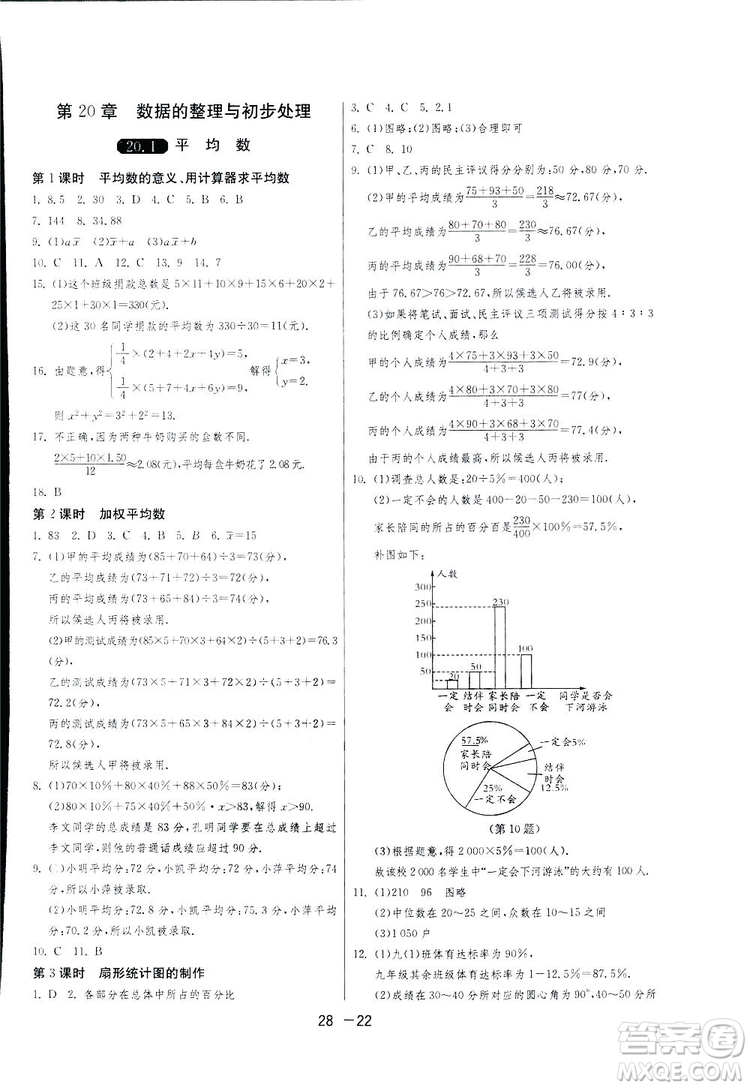 第20章 数据的整理与初步处理
20.1 平均数
第1课时 平均数的意义、用计算器求平均数
1. 8.5 2. 30 3. D 4. C 5. B 6. B
7. 144 8. 34.88
9. (1)a x̄ (2)x̄+a (3)a x̄+b
10. C 11. A 12. C 13. 9 14. 7
15. (1)这个班级捐款总数是5×11+10×9+15×6+20×2+
25×1+30×1=330(元).
(2)这30名同学捐款的平均数为330÷30=11(元).
16. 由题意,得{1/4×(2+4+2x+4y)=5, 1/4×(20-1-4x+y)=2, 解得{x=3, y=2.
则x²+y²=3²+2²=13.
17. 不正确,因为两种牛奶购买的盒数不同.
(2×5+10×1.50)/12≈2.08(元),平均每盒牛奶花了2.08元.
18. B
第2课时 加权平均数
1. 83 2. D 3. C 4. C 5. B 6. x̄=15
7. (1)甲的平均成绩为(85+70+64)÷3=73(分),
乙的平均成绩为(73+71+72)÷3=72(分),
丙的平均成绩为(73+65+84)÷3=74(分),
所以候选人丙将被录用.
(2)甲的测试成绩为(85×5+70×3+64×2)÷(5+3+2)=76.3
(分),
乙的测试成绩为(73×5+71×3+72×2)÷(5+3+2)=
72.2(分),
丙的测试成绩为(73×5+65×3+84×2)÷(5+3+2)=
72.8(分),
所以候选人甲将被录用.
8. (1)70×10%+80×40%+88×50%=83(分).
(2)80×10%+75×40%+50%·x>83,解得x>90.
李文同学的总成绩是83分,孔明同学要在总成绩上超过
李文同学,则他的普通话成绩应超过90分.
9. (1)小明平均分:72;小凯平均分:74;小萍平均分:73,
所以小凯被录取.
(2)小明平均分:72.8;小凯平均分:75.4;小萍平均分:75.8,
所以小萍被录取.
(3)小明平均分:72.5;小凯平均分:73.5;小萍平均分:
70.2,所以小凯被录取.
10. C 11. B
第3课时 扇形统计图的制作
1. D 2. 各部分在总体中所占的百分比
3. C 4. C 5. 2.1
6. (1)图略;(2)图略;(3)合理即可
7. C 8. 10
9. (1)甲、乙、丙的民主评议得分分别为50分、80分、70分.
(2)甲的平均成绩为(75+93+50)/3=218/3≈72.67(分),
乙的平均成绩为(80+70+80)/3=230/3≈76.67(分),
丙的平均成绩为(90+68+70)/3=228/3=76.00(分).
由于76.67>76>72.67,所以候选人乙将被录用.
(3)如果将笔试、面试、民主评议三项测试得分按4:3:3
的比例确定个人成绩,那么
甲的个人成绩为(4×75+3×93+3×50)/(4+3+3)=72.9(分),
乙的个人成绩为(4×80+3×70+3×80)/(4+3+3)=77(分),
丙的个人成绩为(4×90+3×68+3×70)/(4+3+3)=77.4(分).
由于丙的个人成绩最高,所以候选人丙将被录用.
10. (1)调查总人数是:20÷5%=400(人).
(2)一定不会的人数是400-20-50-230=100(人),
家长陪同的所占的百分百是230/400×100%=57.5%,
补图如下:
人数
300
250
200
150
100
50
20
50
230
100
一定会 结伴时会 家长陪同时会 一定不会 同学是否会下河游泳
57.5%
家长陪
同时会
一定会5%
结伴
时会
12.5%
一定不会
25%
(第10题)
(3)根据题意,得2000×5%=100(人).
故该校2000名学生中“一定会下河游泳”的大约有100人.
11. (1)210 96 图略
(2)中位数在20~25之间、众数在10~15之间
(3)1050户
12. (1)九(1)班体育达标率为90%,
九年级其余班级体育达标率为1-12.5%=87.5%.
(2)成绩在20~25对应的圆心角为360°×60%=216°.
28 -22
答案圈
MXQE.COM